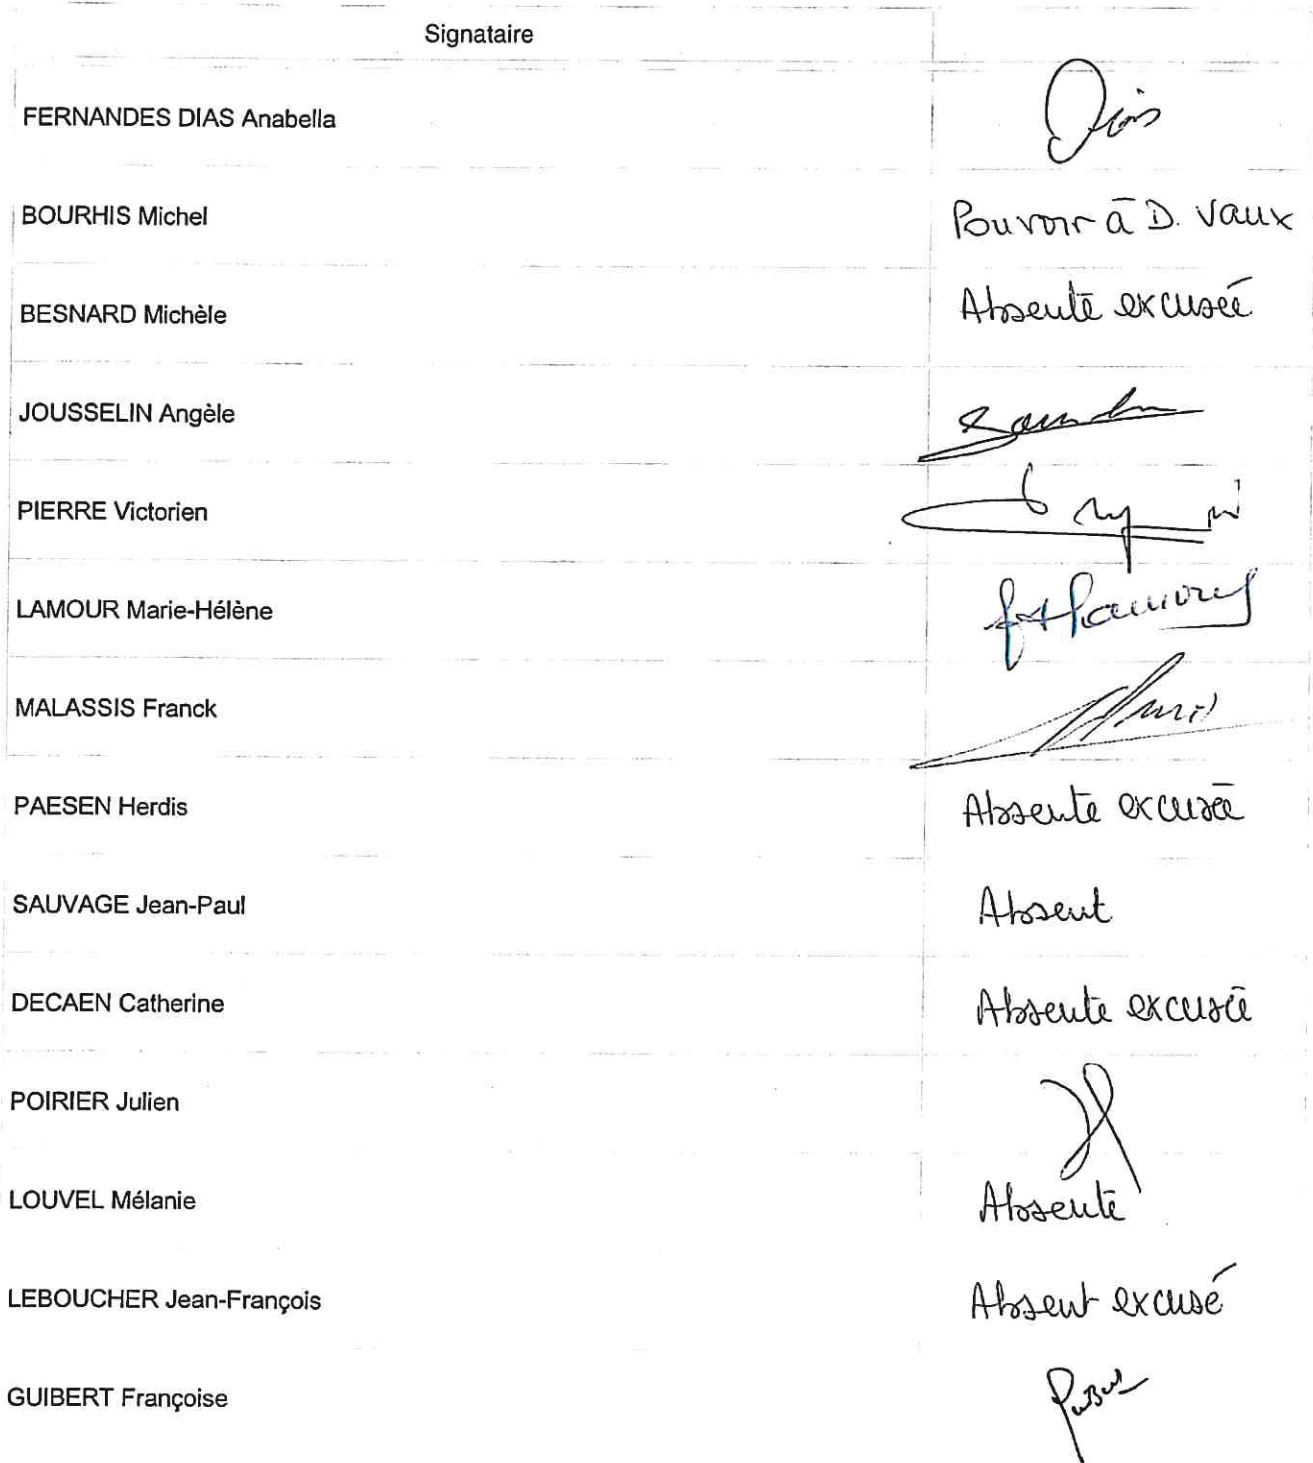 Signataire
FERNANDES DIAS Anabella
BOURHIS Michel Pouvoir à D. Vaux
BESNARD Michèle Absente excusée
JOUSSELIN Angèle
PIERRE Victorien
LAMOUR Marie-Hélène
MALASSIS Franck
PAESEN Herdis Absente excusée
SAUVAGE Jean-Paul Absent
DECAEN Catherine Absente excusée
POIRIER Julien
LOUVEL Mélanie Absente
LEBOUCHER Jean-François Absent excusé
GUIBERT Françoise